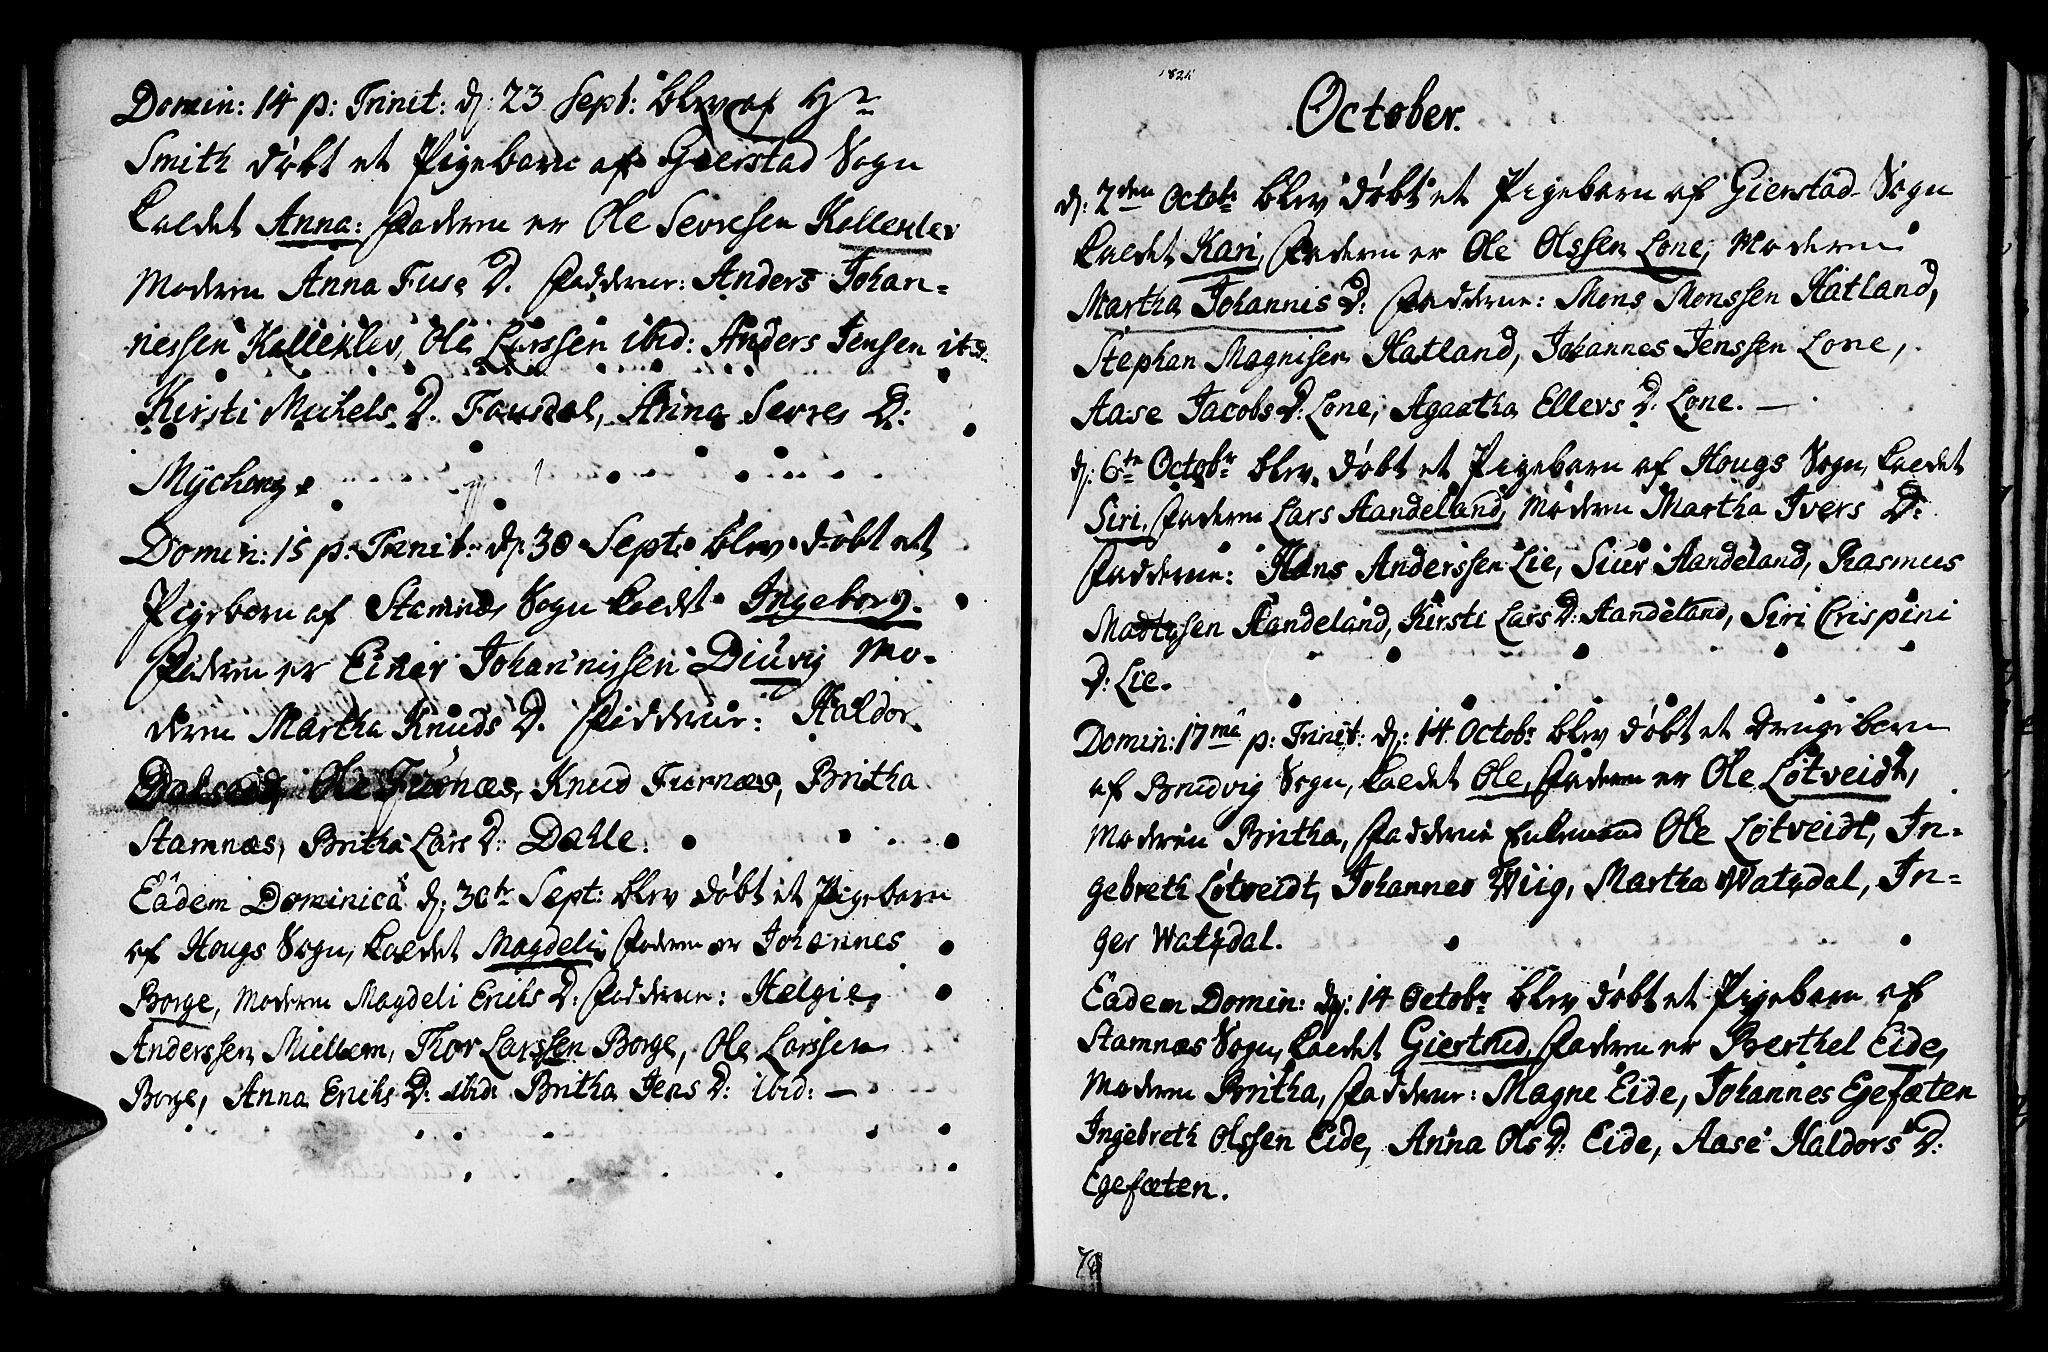 Domin: 14 p: Trinit: d: 23 Sept: blev af Hr
Smith døbt et Pigebarn af Gierstad Sogn
kaldet Anna: Faderen er Ole Sevresen Kalleklev
Moderen Anna Fuse D. Fadderne: Anders Johan-
nessen Kalleklev, Ole Larssen ibid: Anders Jensen ibid.
Kirsti Michels D. Fausdal, Anna Sevres D:
Myching
Domin: 15 p: Trinit: d: 30 Sept: blev døbt et
Pigebarn af Stamnæs Sogn kaldet Ingeborg.
Faderen er Einer Johannissen Diuvig Mo-
deren Martha Knuds D. Fadderne: Haldor
Dalseid, Ole Furnæs, Knud Furnæs, Britha
Stamnæs, Britha Lars D: Dahle.
Eâdem Dominicâ d: 30te Sept: blev døbt et Pigebarn
af Hougs Sogn, kaldet Magdeli, Faderen er Johannes
Borge, Moderen Magdeli Erichs D: Fadderne: Helgie
Anderssen Miellem, Thor Larssen Borge, Ole Larssen
Borge, Anna Erichs D: ibid: Britha Jens D: ibid: —
October.
d: 2den Octobr blev døbt et Pigebarn af Gierstad Sogn
kaldet Kari, Faderen er Ole Olssen Lone, Moderen
Martha Johannis D: Fadderne: Mons Monssen Hatland,
Stephan Magnisen Hatland, Johannes Jenssen Lone,
Aase Jacobs D: Lone, Agaatha Ellevs D: Lone. —
d: 6te Octobr blev døbt et Pigebarn af Hougs Sogn, kaldet
Siri, Faderen Lars Aandeland, Moderen Martha Ivers D:
Fadderne: Hans Anderssen Lie, Siur Aandeland, Rasmus
Madtysen Aandeland, Kirsti Lars D: Aandeland, Siri Crispini
D: Lie.
Domin: 17mâ p: Trinit: d: 14 Octobr blev døbt et Drengebarn
af Brudvig Sogn, kaldet Ole, Faderen er Ole Løtveidt,
Moderen Britha, Fadderne Enkemand Ole Løtveidt, In-
gebreth Løtveidt, Johannes Wiig, Martha Watsdal, In-
ger Watsdal.
Eadem Domin: d: 14 Octobr blev døbt et Pigebarn af
Stamnæs Sogn, kaldet Giertrud, Faderen er Berthel Eide,
Moderen Britha, Fadderne: Magne Eide, Johannes Egefæten
Ingebreth Olssen Eide, Anna Ols D: Eide, Aase Haldors D:
Egefæten.